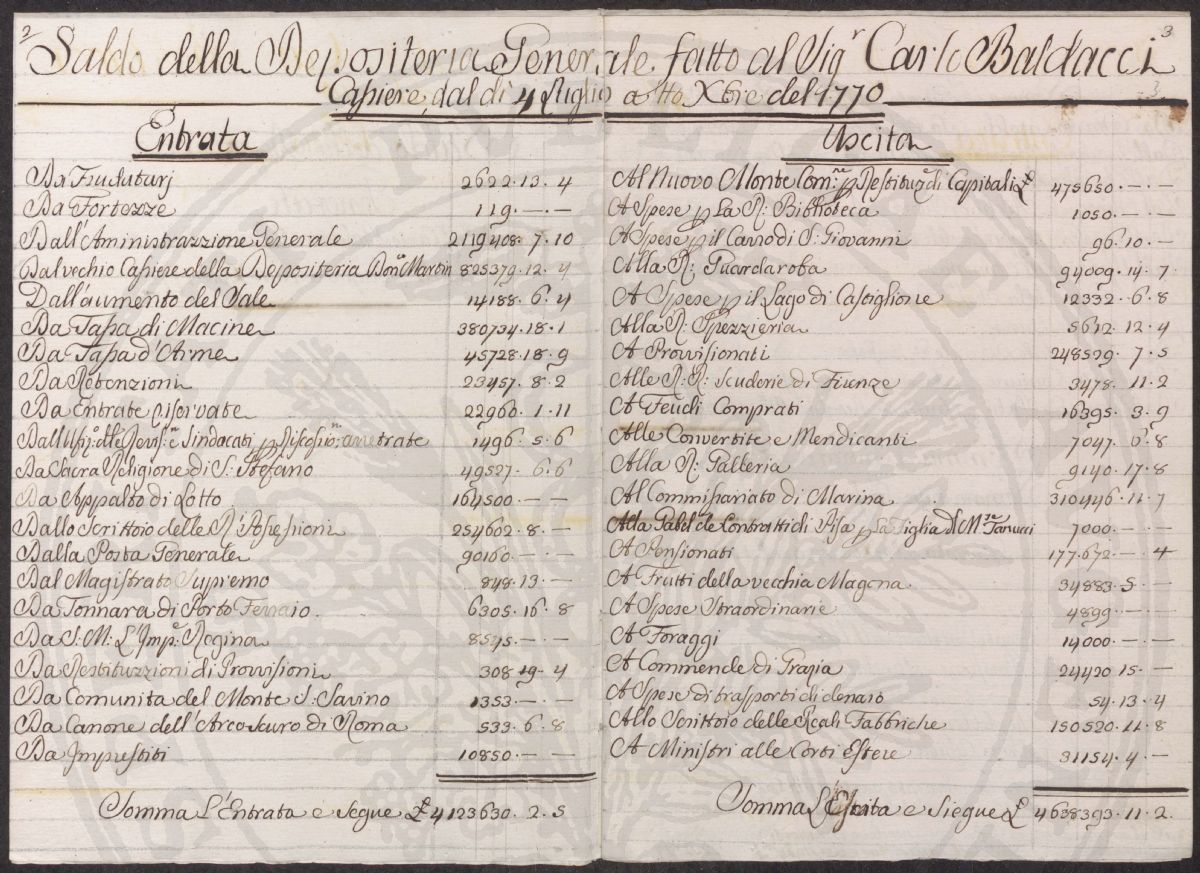 2
3
Saldo della Depositeria Generale fatto al Sigr Carlo Baldacci
Cassiere, dal di 4 Luglio a tto Xbre del 1770
Entrata
Da Feudatarj 2622.13.4
Da Fortezze 119.—.—
Dall'Aministrazzione Generale 2119408.7.10
Dal vechio Cassiere della Depositeria Dono Martin 825379.12.4
Dall'aumento del Sale 14188.6.4
Da Tassa di Macine 380734.18.1
Da Tassa d'Arme 45728.18.9
Da Retenzioni 23457.8.2
Da Entrate riservate 22960.1.11
Sindacati arretrate 1496.5.6
Da Sacra Religione di S: Stefano 49527.6.6
Da Appalto di Lotto 164500.—.—
Dallo Scrittoio delle R: Possessioni 254602.8.—
Dalla Posta Generale 90160.—.—
Dal Magistrato Supremo 848.13.—
Da Tonnara di Porto Ferraio 6305.16.8
Da S: M: L'Imp: Regina 8545.—.—
Da Restituzzioni di Provvisioni 308.19.4
Da Comunita del Monte S: Savino 1353.—.—
Da Canone dell'Arco scuro di Roma 533.6.8
Da Imprestiti 10850.—.—
Somma L'Entrata e Segue £ 4123630.2.5
Uscita
Al Nuovo Monte Comne p Restituz: di Capitali 475650.—.—
A Spese p La R: Biblioteca 1050.—.—
A Spese p il Carro di S. Giovanni 96.10.—
Alla R: Guardaroba 94009.14.7
A Spese p il Lago di Castiglione 12332.6.8
Alla R: Spezzieria 5612.12.4
A Provvisionati 248529.7.5
Alle R: R: Scuderie di Firenze 3478.11.2
A Feudi Comprati 16395.3.9
Alle Convertite e Mendicanti 7047.6.8
Alla R: Galleria 9140.17.8
Al Commissariato di Marina 310446.11.7
Alla Gabel. de Contratti di Pisa p La Figlia del Mse Tanucci 7000.—.—
A Pensionati 177.672.—.4
A Frutti della vecchia Magona 34883.5.—
A Spese Straordinarie 4899.—.—
A Foraggi 14000.—.—
A Commende di Grazia 24420.15.—
A Spese di trasporti di denaro 54.13.4
Allo Scrittoio delle Reali Fabbriche 150520.11.8
A Ministri alle Corti Estere 31154.4.—
Somma L'Escita e Siegue £ 4638393.11.2.